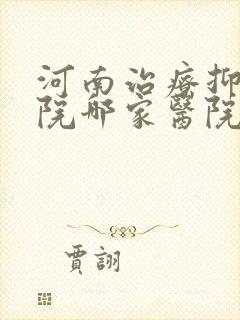 河南治療抑
院哪家醫院
賈詡